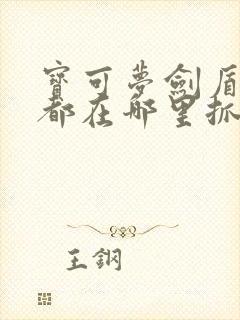 寶可夢劍盾
都在哪里抓
王鋼